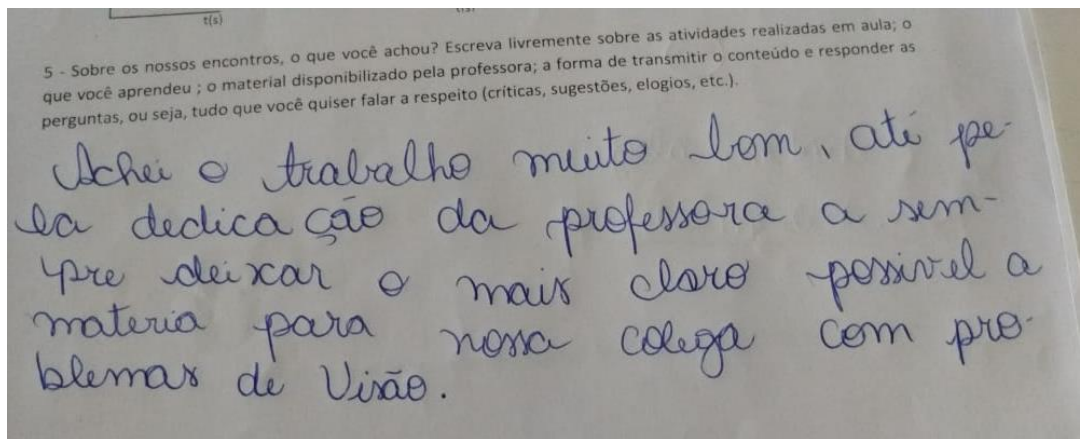 t(s)
5 - Sobre os nossos encontros, o que você achou? Escreva livremente sobre as atividades realizadas em aula; o
que você aprendeu ; o material disponibilizado pela professora; a forma de transmitir o conteúdo e responder as
perguntas, ou seja, tudo que você quiser falar a respeito (críticas, sugestões, elogios, etc.).
Achei o trabalho muito bom, até pe-
la dedicação da professora a sem-
pre deixar o mais claro possivel a
materia para nossa colega com pro-
blemas de Visão.